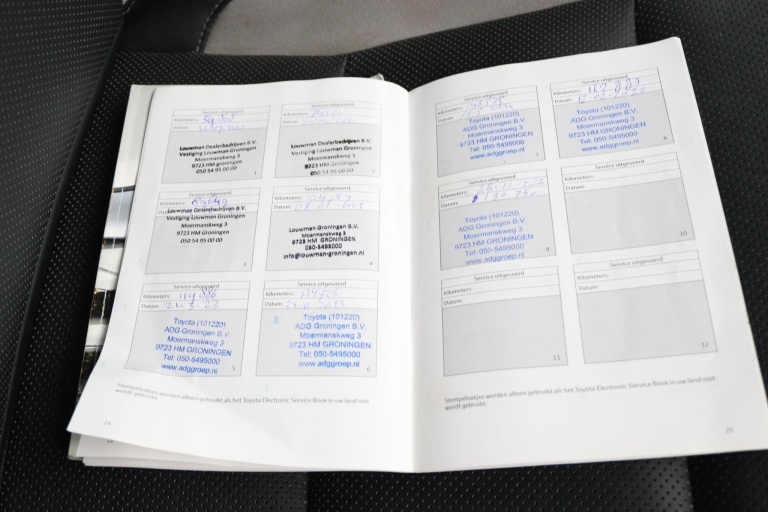 Service uitgevoerd
Kilometers:
Datum:
Louwman Dealerbedrijven B.V.
Vestiging Louwman Groningen
Moermanskweg 3
9723 HM Groningen
050 54 95 00 00
1
Service uitgevoerd
Kilometers:
Datum:
Louwman Dealerbedrijven B.V.
Vestiging Louwman Groningen
Moermanskweg 3
9723 HM Groningen
050 54 95 00 00
2
Service uitgevoerd
Kilometers:
Datum:
Louwman Dealerbedrijven B.V.
Vestiging Louwman Groningen
Moermanskweg 3
9723 HM Groningen
050 54 95 00 00
3
Service uitgevoerd
Kilometers:
Datum:
Louwman Groningen B.V.
Moermanskweg 3
9723 HM GRONINGEN
050-5495000
info@louwman-groningen.nl
4
Service uitgevoerd
Kilometers:
Datum:
Toyota (101220)
ADG Groningen B.V.
Moermanskweg 3
9723 HM GRONINGEN
Tel: 050-5495000
www.adggroep.nl
5
Service uitgevoerd
Kilometers:
Datum:
Toyota (101220)
ADG Groningen B.V.
Moermanskweg 3
9723 HM GRONINGEN
Tel: 050-5495000
www.adggroep.nl
6
Stempelvakjes worden alleen gebruikt als het Toyota Electronic Service Book in uw land niet
wordt gebruikt.
24
Service uitgevoerd
Kilometers:
Datum:
Toyota (101220)
ADG Groningen B.V.
Moermanskweg 3
9723 HM GRONINGEN
Tel: 050-5495000
www.adggroep.nl
7
Service uitgevoerd
Kilometers:
Datum:
Toyota (101220)
ADG Groningen B.V.
Moermanskweg 3
9723 HM GRONINGEN
Tel: 050-5495000
www.adggroep.nl
8
Service uitgevoerd
Kilometers:
Toyota (101220)
ADG Groningen B.V.
Moermanskweg 3
9723 HM GRONINGEN
Tel: 050-5495000
www.adggroep.nl
9
Service uitgevoerd
Kilometers:
Datum:
10
Service uitgevoerd
Kilometers:
Datum:
11
Service uitgevoerd
Kilometers:
Datum:
12
Stempelvakjes worden alleen gebruikt als het Toyota Electronic Service Book in uw land niet
wordt gebruikt.
25